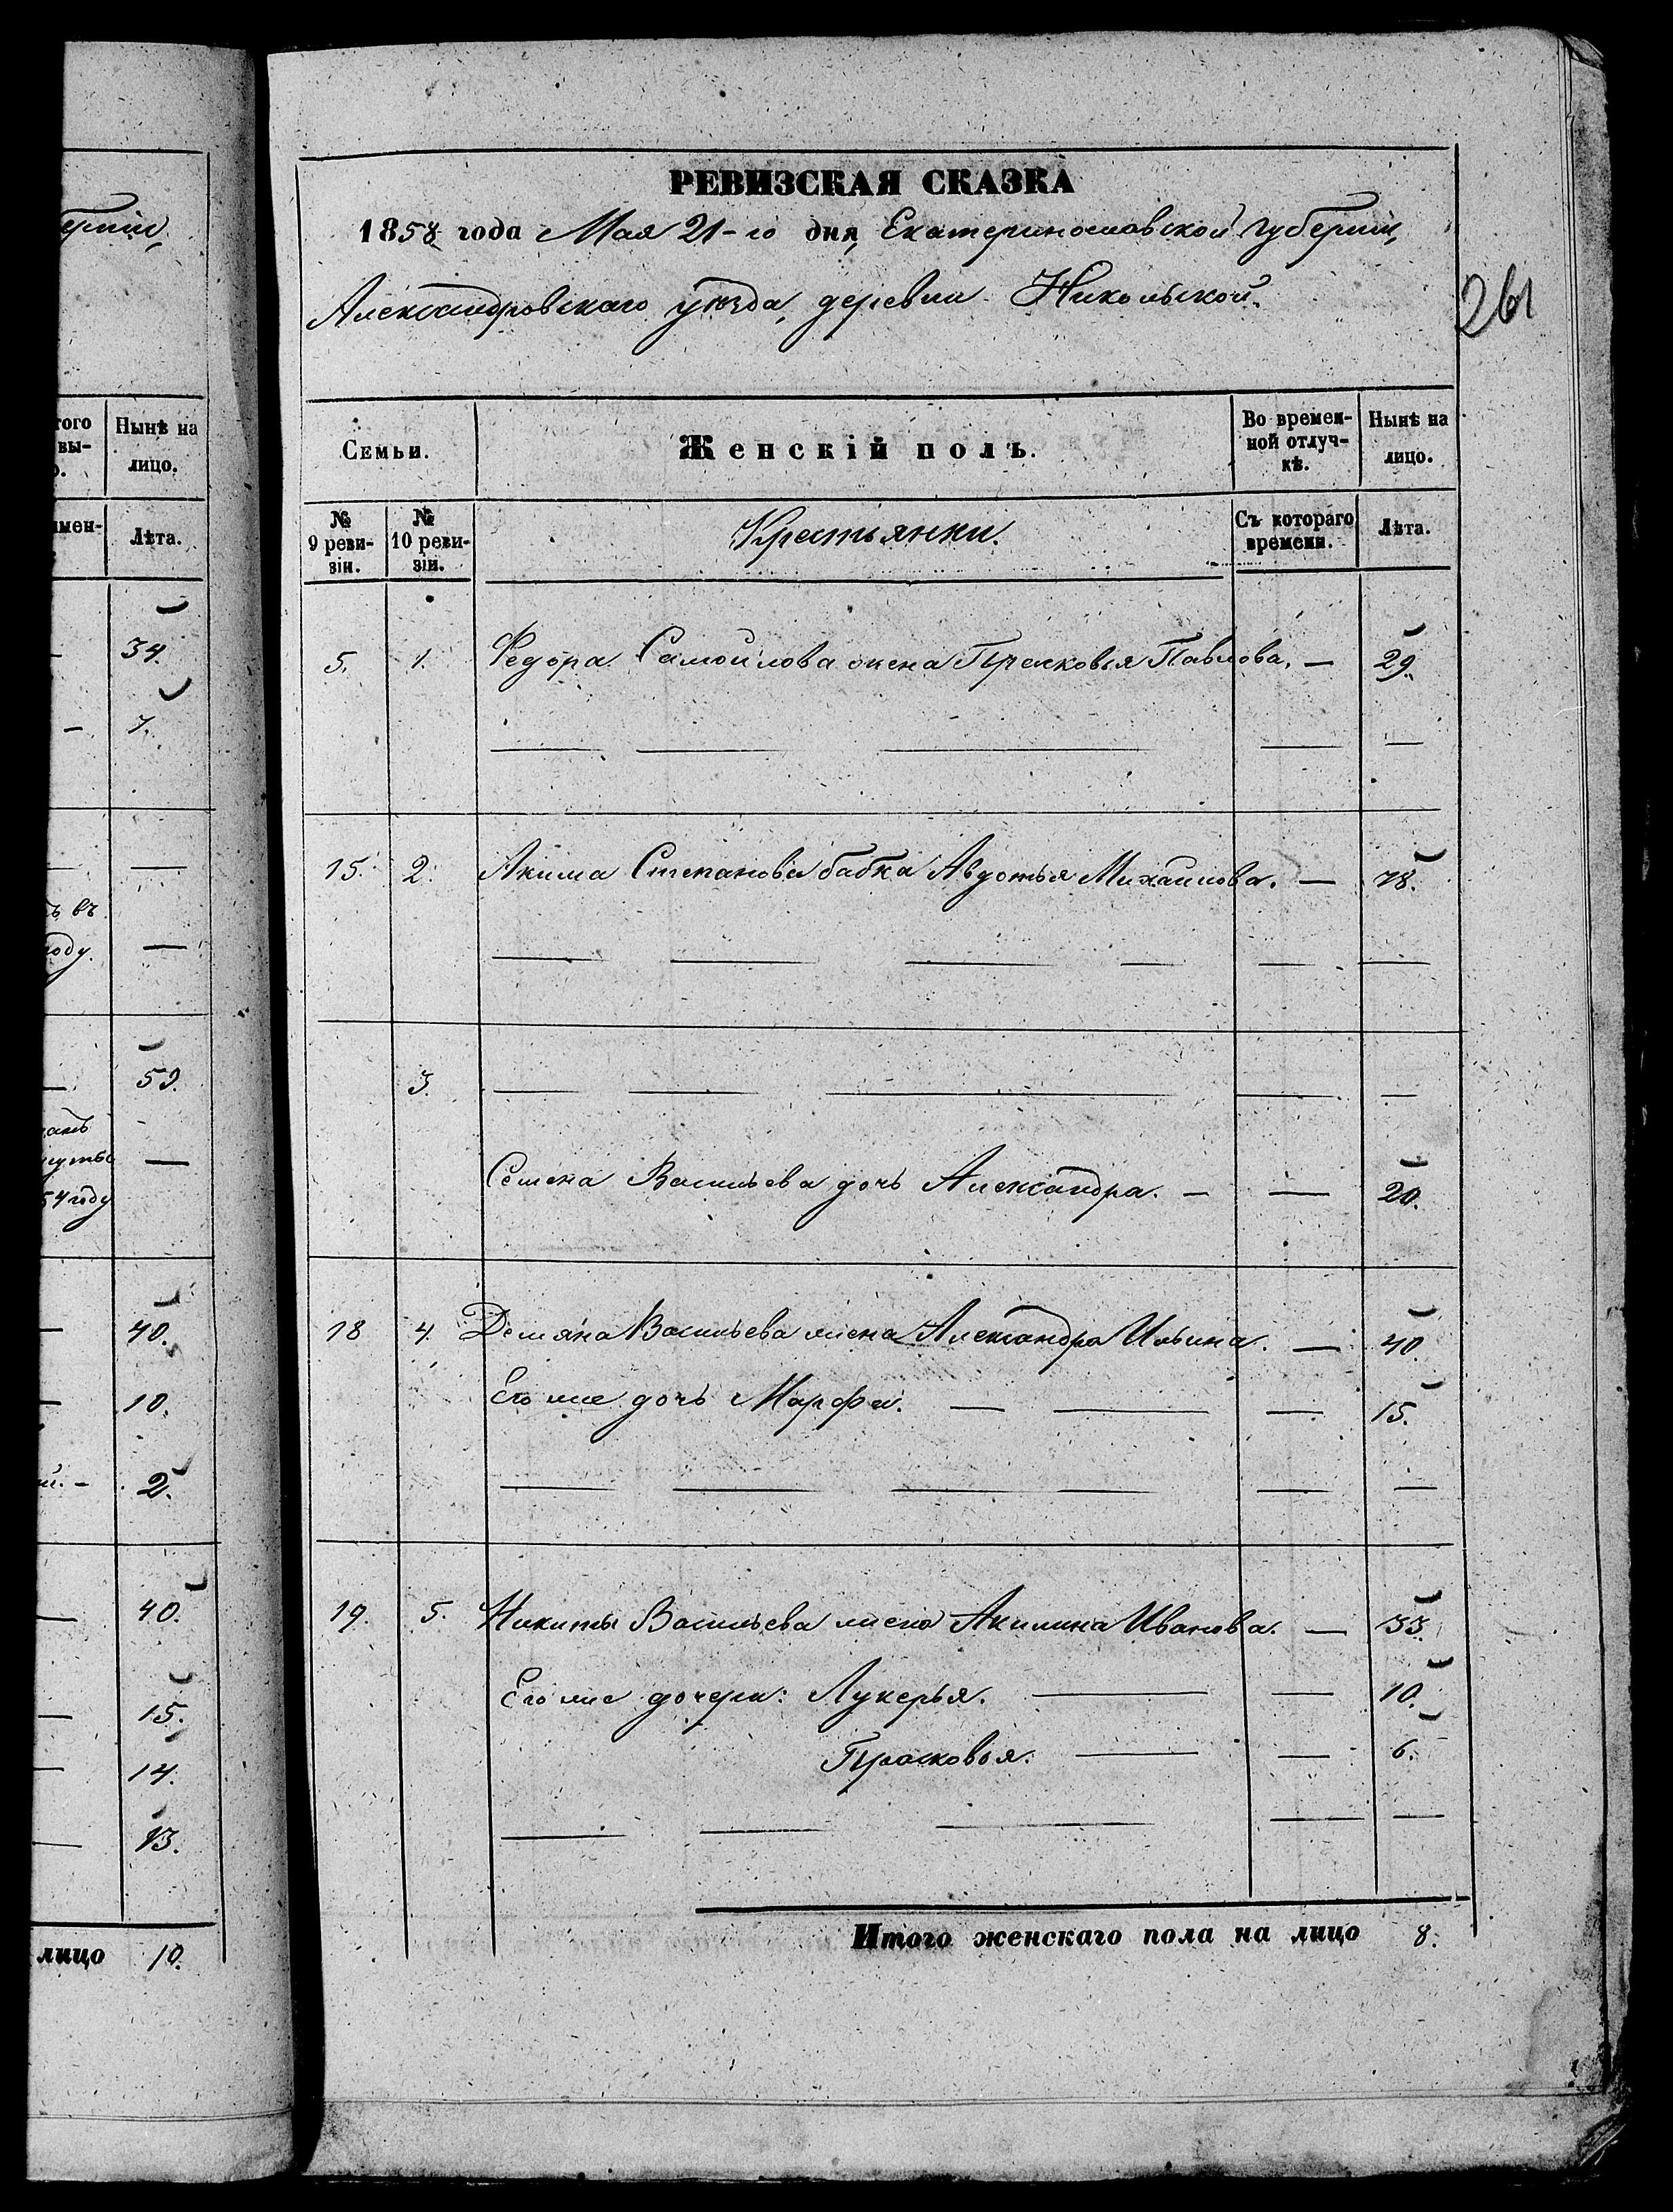 ерніи,
того
вы-
о.
Нынѣ на
лицо.
имен-
Лѣта.
34.
7.
ъ въ
году.
59.
54 году
40.
10.
2.
40.
15.
14.
13.
лицо 10.
РЕВИЗСКАЯ СКАЗКА
1858 года Мая 21-го дня, Екатеринославской Губерніи,
Александровскаго уѣзда, деревни Никольской.
261
Семьи.
Женскій полъ.
Во времен-
ной отлуч-
кѣ.
Нынѣ на
лицо.
№
9 реви-
зіи.
№
10 реви-
зіи.
Крестьянки.
Съ котораго
времени.
Лѣта.
5. 1. Федора Самойлова жена Прасковья Павлова. — 29.
15. 2. Акима Степанова бабка Авдотья Михайлова. — 78.
3.
Семена Васильева дочь Александра. — — 20.
18 4. Демяна Васильева жена Александра Ильина. — 40.
Его же дочь Марфа. — — — 15.
19. 5. Никиты Васильева жена Акилина Иванова. — 33.
Его же дочери: Лукерья. — — 10.
Прасковья. — — 6.
Итого женскаго пола на лицо 8.